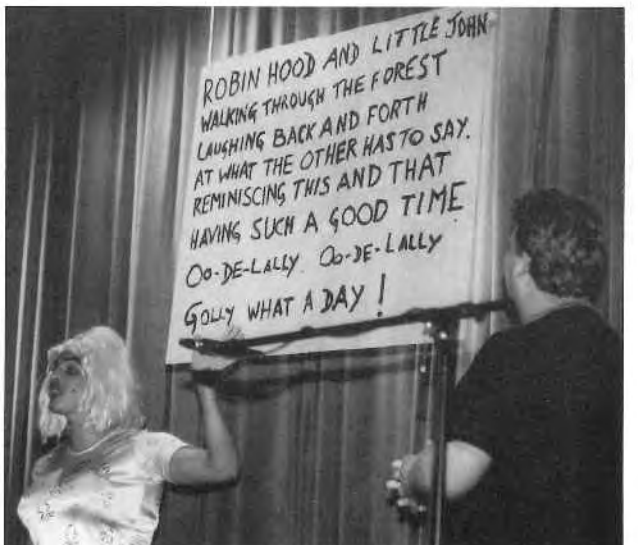 ROBIN HOOD AND LITTLE JOHN
WALKING THROUGH THE FOREST
LAUGHING BACK AND FORTH
AT WHAT THE OTHER HAS TO SAY.
REMINISCING THIS AND THAT
HAVING SUCH A GOOD TIME
OO-DE-LALLY OO-DE-LALLY
GOLLY WHAT A DAY !